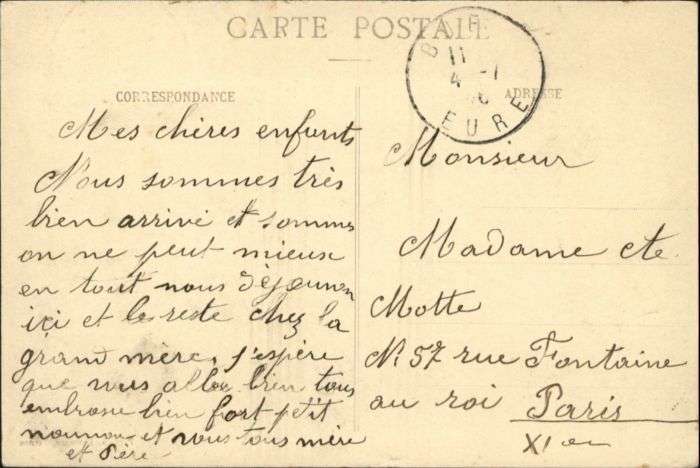 CARTE POSTALE
CORRESPONDANCE
ADRESSE
EURE
11
4 -1
Mes chères enfants
Nous sommes très
bien arrivé et sommes
on ne peut mieux
en tout nous déjeunon
ici et le reste chez la
grand mère, j'espère
que vous allez bien tous
embrasse bien fort petit
et vous tous mère
et Père
Monsieur
Madame
Motte
N. 57 rue Fontaine
au roi Paris
XI